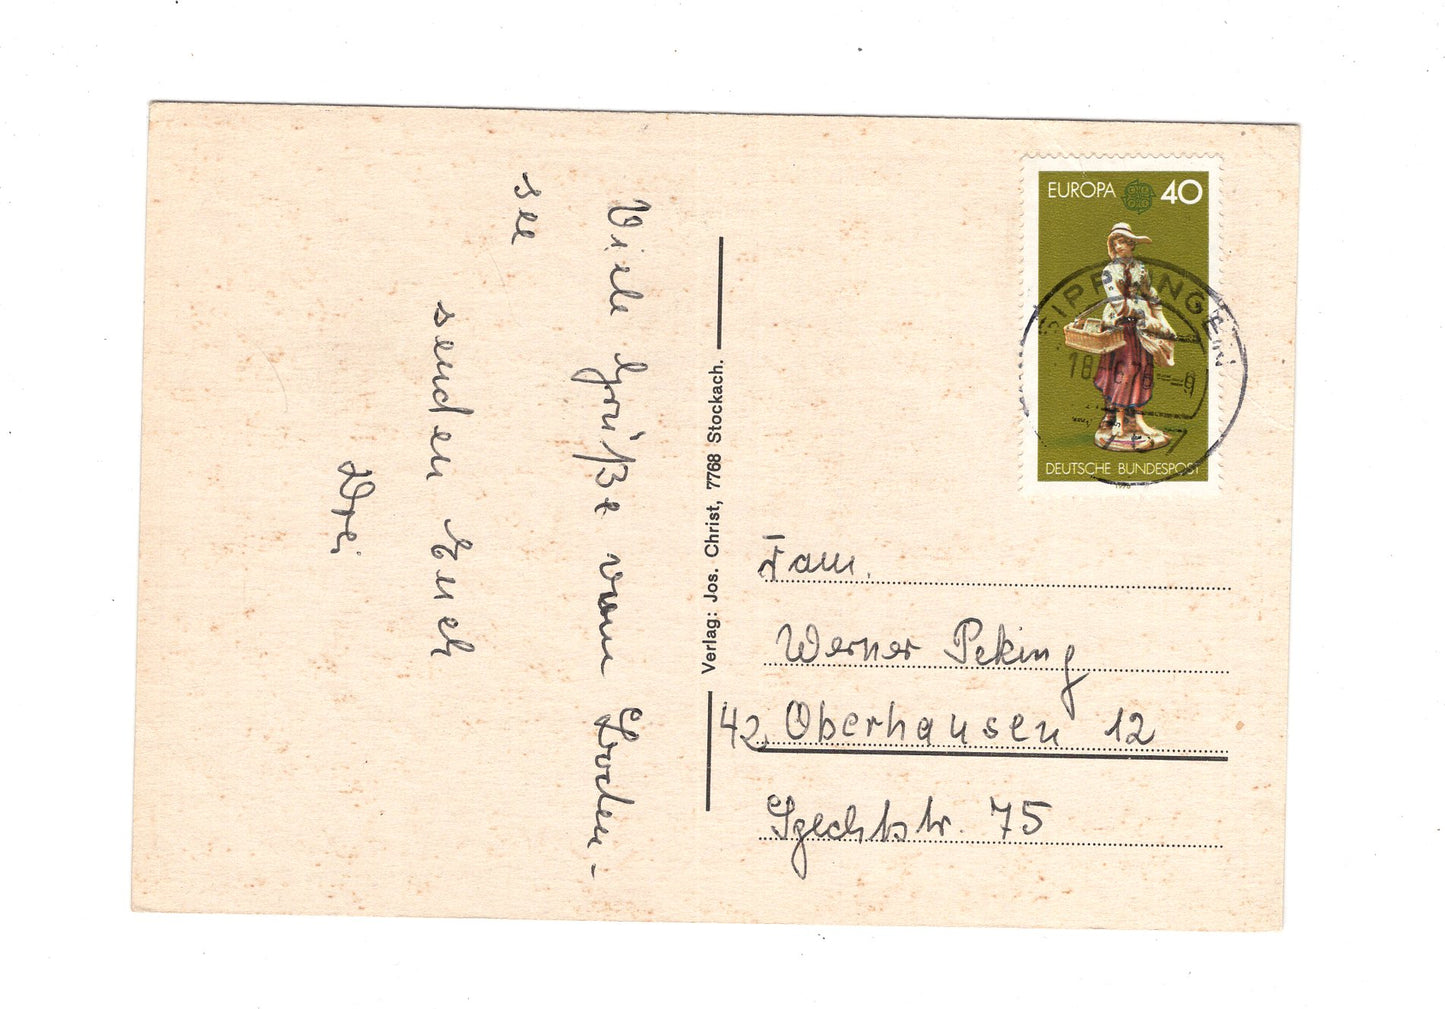 Viele Grüße vom Boden-
see
senden Euch
Drei
Verlag: Jos. Christ, 7768 Stockach.
EUROPA 40
DEUTSCHE BUNDESPOST
1976
SIPPLINGEN
18.-6.76--9
Fam.
Werner Peking
42 Oberhausen 12
75